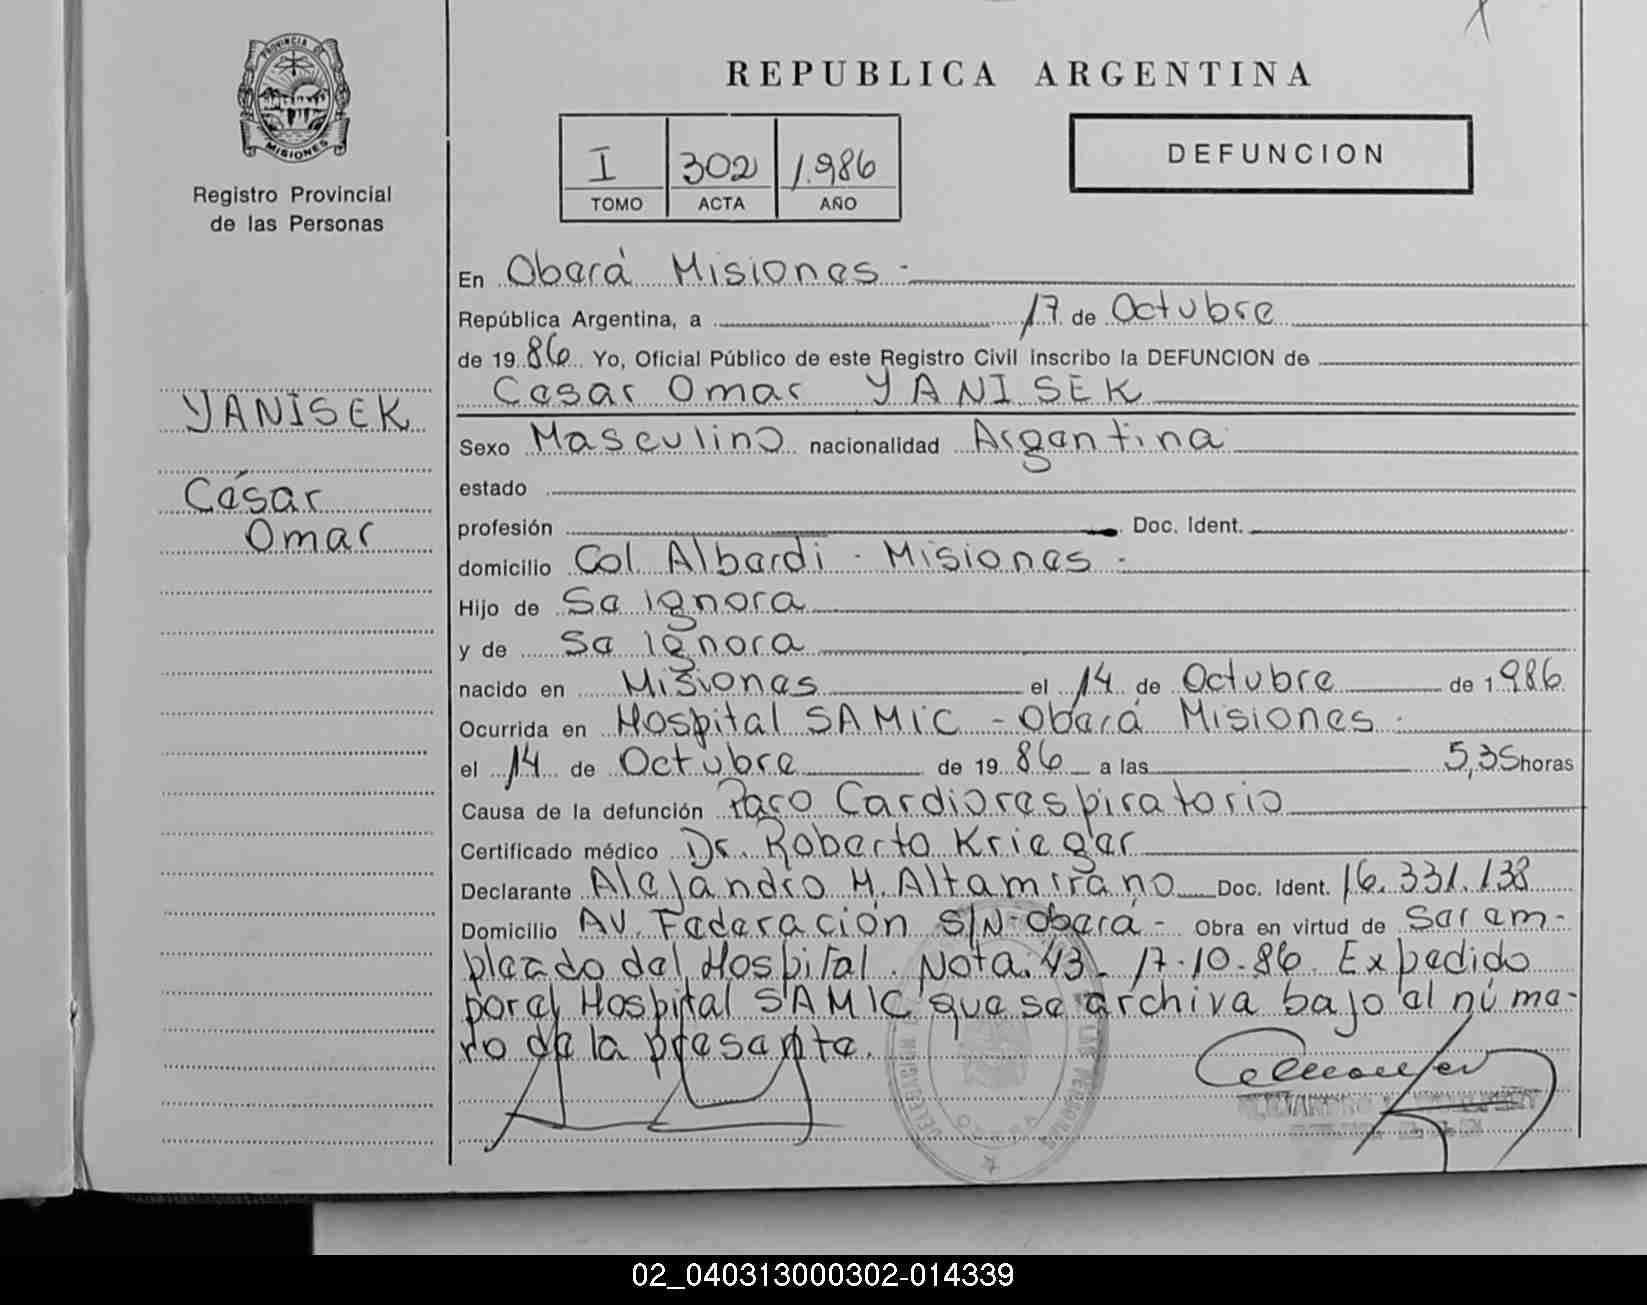 PROVINCIA DE
MISIONES
Registro Provincial
de las Personas
YANISEK
César
Omar
REPUBLICA ARGENTINA
I 302 1.986
TOMO ACTA AÑO
DEFUNCION
En Oberá Misiones -
República Argentina, a 17 de Octubre
de 19 86 Yo, Oficial Público de este Registro Civil inscribo la DEFUNCION de
Cesar Omar YANISEK
Sexo Masculino nacionalidad Argentina
estado
profesión Doc. Ident.
domicilio Col Alberdi - Misiones -
Hijo de Se ignora
y de Se ignora
nacido en Misiones el 14 de Octubre de 1 986
Ocurrida en Hospital SAMIC - Oberá Misiones -
el 14 de Octubre de 19 86 a las 5,35 horas
Causa de la defunción Paro Cardiorespiratorio
Certificado médico Dr. Roberto Krieger
Declarante Alejandro H. Altamirano Doc. Ident. 16.331.138
Domicilio AV. Federación S/N - Oberá - Obra en virtud de Ser em-
pleado del Hospital. Nota. 43 - 17-10-86. Expedido
por el Hospital SAMIC que se archiva bajo el núme-
ro de la presente.
02_040313000302-014339